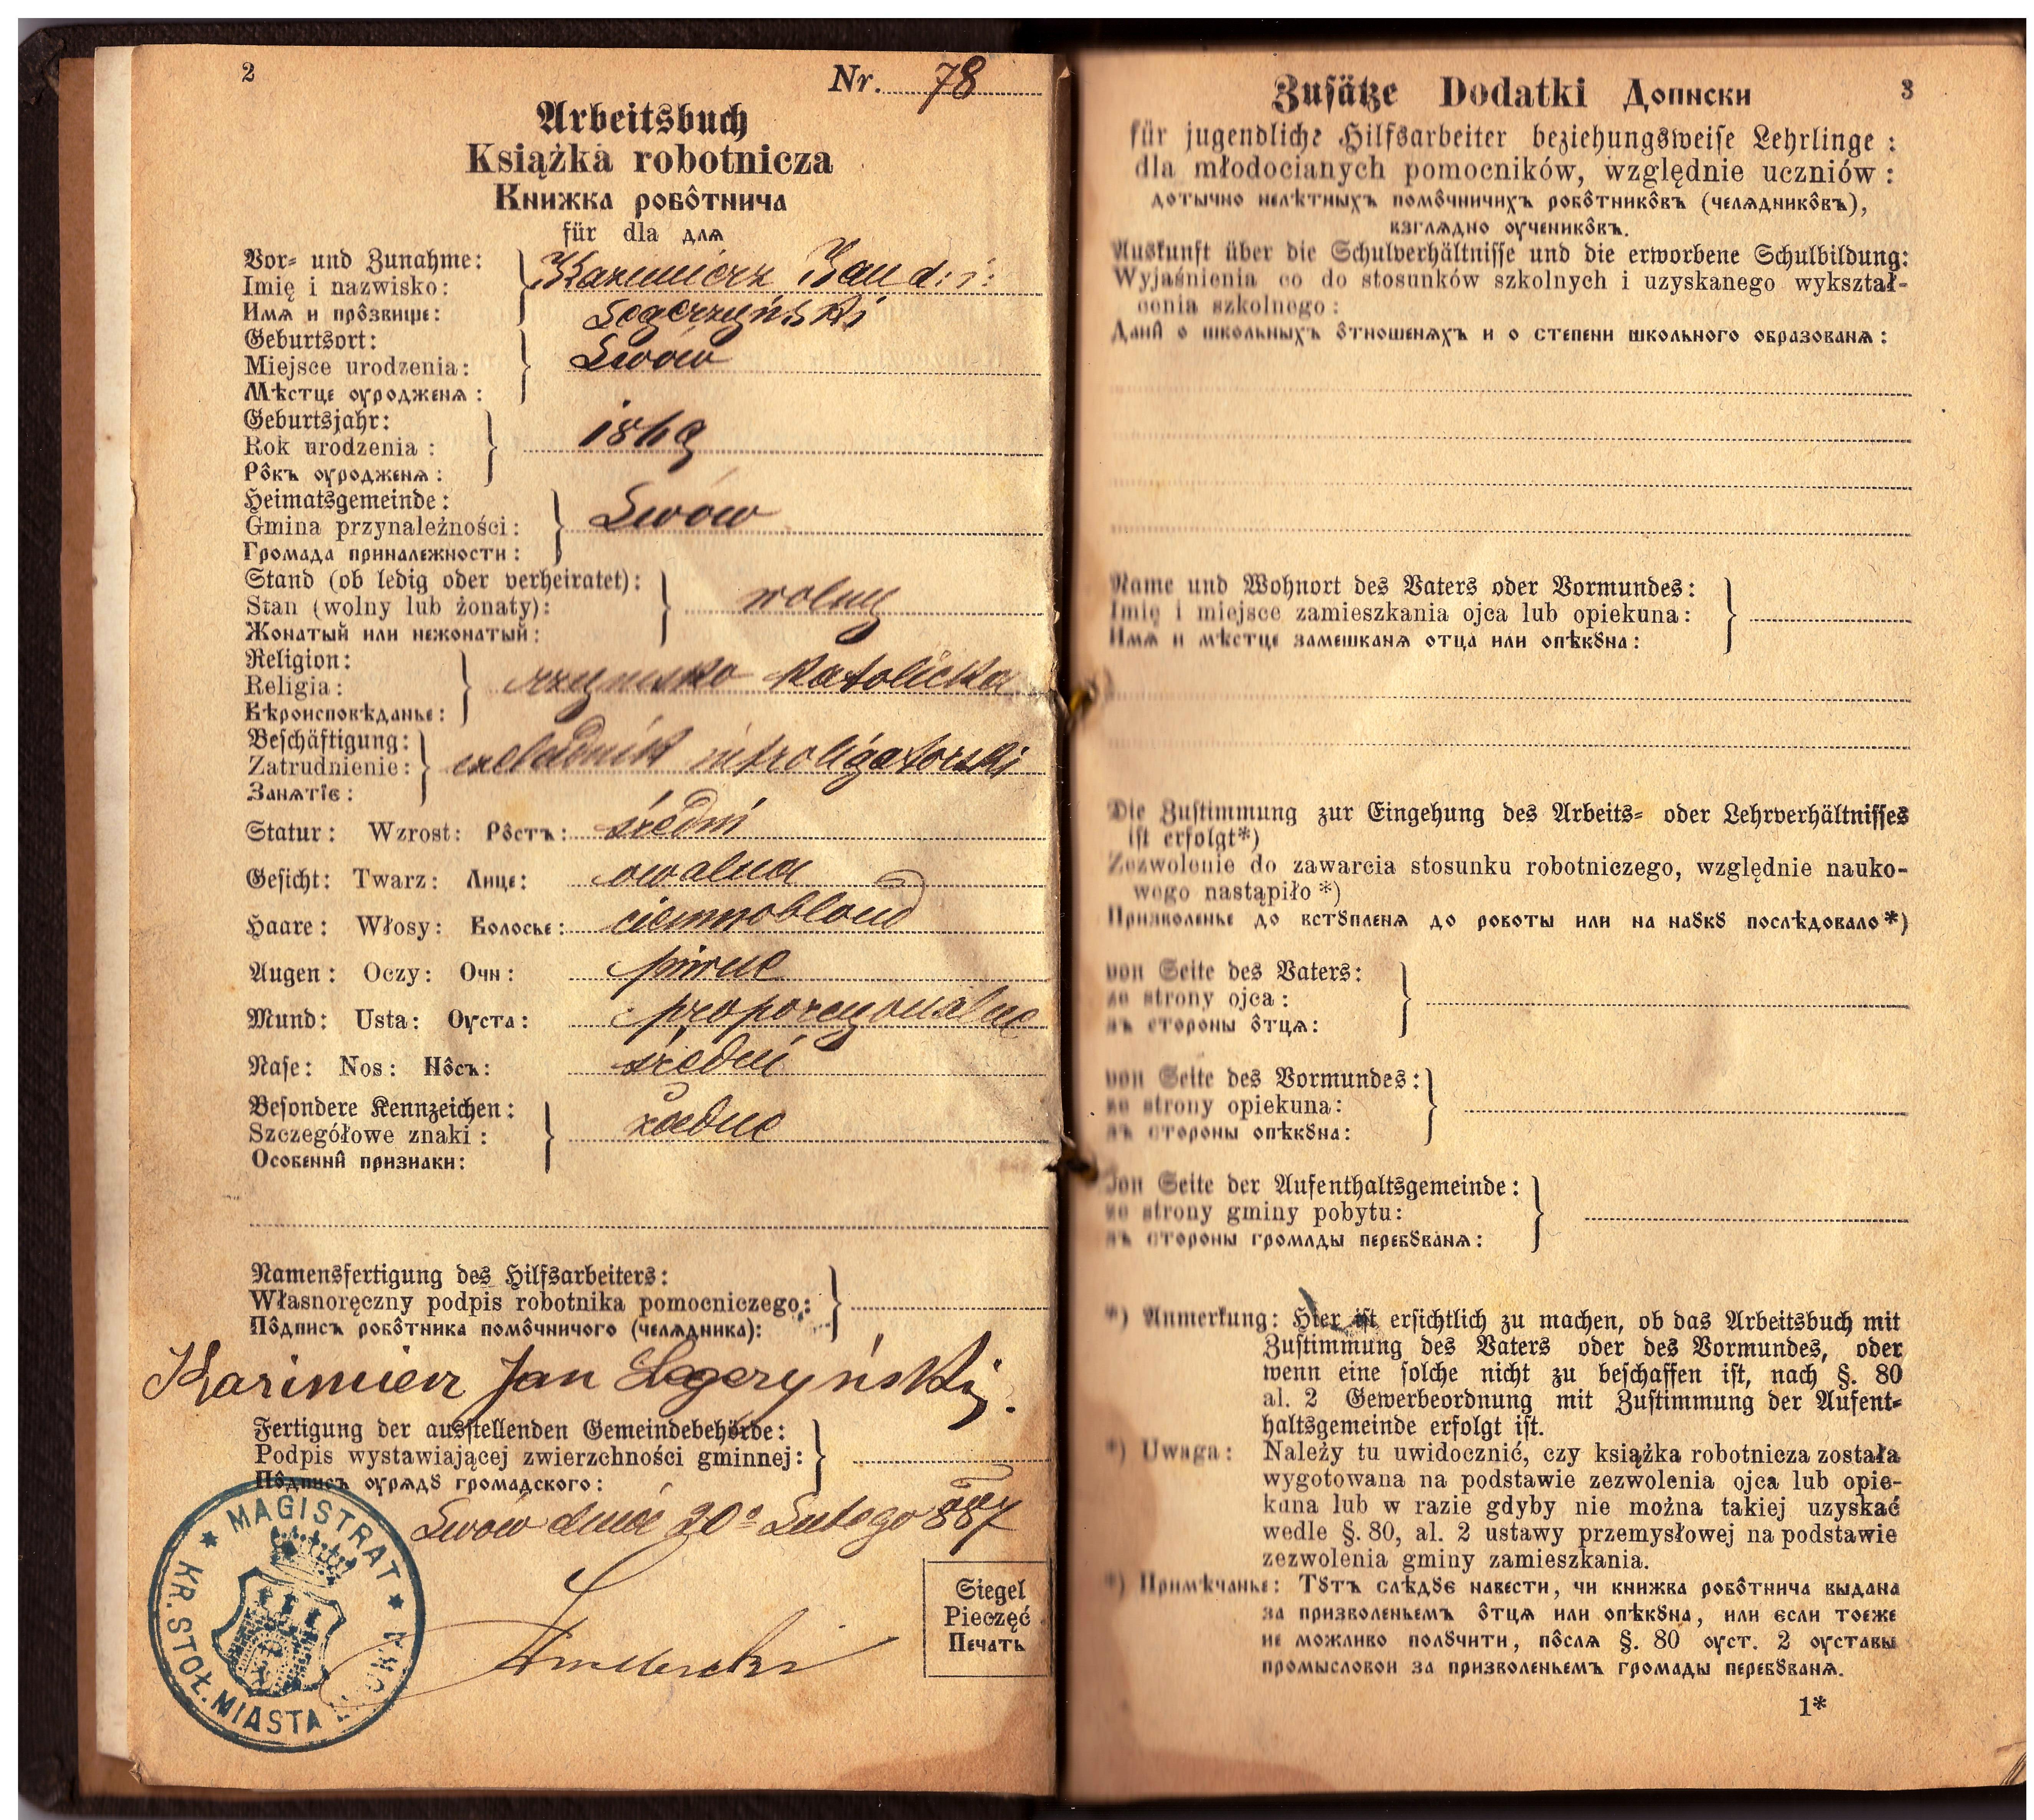 2
Nr. 78
Arbeitsbuch
Książka robotnicza
Книжка робôтнича
für dla для
Vor= und Zunahme:
Imię i nazwisko:
Имѧ и прôзвище:
Kazimierz Jan d: i:
Legerzyński
Geburtsort:
Miejsce urodzenia:
Мѣстце оуродженѧ:
Lwów
Geburtsjahr:
Rok urodzenia:
Рôкъ оуродженѧ:
1869
Heimatsgemeinde:
Gmina przynależności:
Громада приналежности:
Lwów
Stand (ob ledig oder verheiratet):
Stan (wolny lub żonaty):
Жонатый или нежонатый:
wolny
Religion:
Religia:
Вѣроисповѣданье:
rzymsko katolicka
Beschäftigung:
Zatrudnienie:
Занѧтїє:
czeladnik introligatorski
Statur: Wzrost: Рôстъ: średni
Gesicht: Twarz: Лице: owalna
Haare: Włosy: Волосье: ciemnoblond
Augen: Oczy: Очи: piwne
Mund: Usta: Оуста: proporcyonalne
Nase: Nos: Нôсъ: średni
Besondere Kennzeichen:
Szczegółowe znaki:
Особенни̂ признаки:
żadne
Namensfertigung des Hilfsarbeiters:
Własnoręczny podpis robotnika pomocniczego:
Пôдпись робôтника помôчничого (челѧдника):
Kazimierz Jan Legeryński.
Fertigung der ausstellenden Gemeindebehörde:
Podpis wystawiającej zwierzchności gminnej:
Пôдпись оурѧдꙋ громадского:
Lwów dnia 20o Lutego 887
MAGISTRAT
KR. STOŁ. MIASTA
Siegel
Pieczęć
Печать
Zusätze Dodatki Дописки
3
für jugendliche Hilfsarbeiter beziehungsweise Lehrlinge:
dla młodocianych pomocników, względnie uczniów:
дотычно нелѣтныхъ помôчничихъ робôтникôвъ (челѧдникôвъ),
взглѧдно оученикôвъ.
Auskunft über die Schulverhältnisse und die erworbene Schulbildung:
Wyjaśnienia co do stosunków szkolnych i uzyskanego wykształ-
cenia szkolnego:
Дани̂ о школьныхъ ôтношенѧхъ и о степени школьного образованѧ:
Name und Wohnort des Vaters oder Vormundes:
Imię i miejsce zamieszkania ojca lub opiekuna:
Имѧ и мѣстце замешканѧ отца или опѣкꙋна:
Die Zustimmung zur Eingehung des Arbeits= oder Lehrverhältnisses
ist erfolgt*)
Zezwolenie do zawarcia stosunku robotniczego, względnie nauko-
wego nastąpiło*)
Призволенье до встꙋпленѧ до роботы или на наꙋкꙋ послѣдовало*)
von Seite des Vaters:
ze strony ojca:
зъ стороны ôтцѧ:
von Seite des Vormundes:
ze strony opiekuna:
зъ стороны опѣкꙋна:
von Seite der Aufenthaltsgemeinde:
ze strony gminy pobytu:
зъ стороны громады перебꙋванѧ:
*) Anmerkung: Hier ist ersichtlich zu machen, ob das Arbeitsbuch mit
Zustimmung des Vaters oder des Vormundes, oder
wenn eine solche nicht zu beschaffen ist, nach §. 80
al. 2 Gewerbeordnung mit Zustimmung der Aufent=
haltsgemeinde erfolgt ist.
*) Uwaga: Należy tu uwidocznić, czy książka robotnicza została
wygotowana na podstawie zezwolenia ojca lub opie-
kuna lub w razie gdyby nie można takiej uzyskać
wedle §. 80, al. 2 ustawy przemysłowej na podstawie
zezwolenia gminy zamieszkania.
*) Примѣчанье: Тꙋтъ слѣдꙋє навести, чи книжка робôтнича выдана
за призволеньемъ ôтцѧ или опѣкꙋна, или если тоеже
не можливо полꙋчити, пôслѧ §. 80 оуст. 2 оуставы
промысловои за призволеньемъ громады перебꙋванѧ.
1*